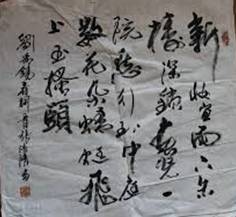 新妝宜面下朱
樓深鎖春光一
院愁行到中庭
數花朵蜻蜓飛
上玉搔頭
劉禹錫春詞